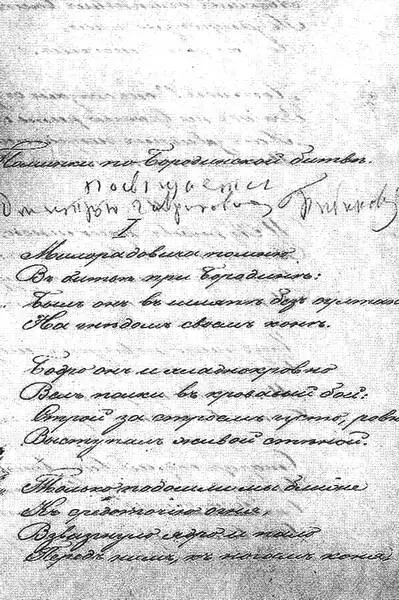 Поминки по Бородинской битвѣ.
Посвящается
Дмитрію Гавриловичу Бибикову
I
Милорадовича помню
Въ битвѣ при Бородинѣ:
Былъ онъ въ шляпѣ безъ султана
На гнѣдомъ своемъ конѣ.
Бодро онъ и хладнокровно
Велъ полки въ кровавый бой:
Строй за строемъ густо, ровно
Выступалъ живой стѣной.
Только подошли мы ближе
Къ средоточію огня,
Взвизгнуло ядро и пало
Передъ нимъ, къ ногамъ коня,